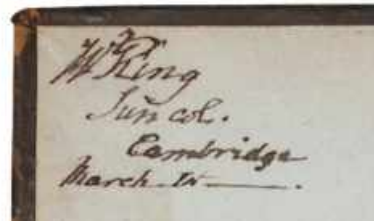 Wm King
Jun col.
Cambridge
March 15